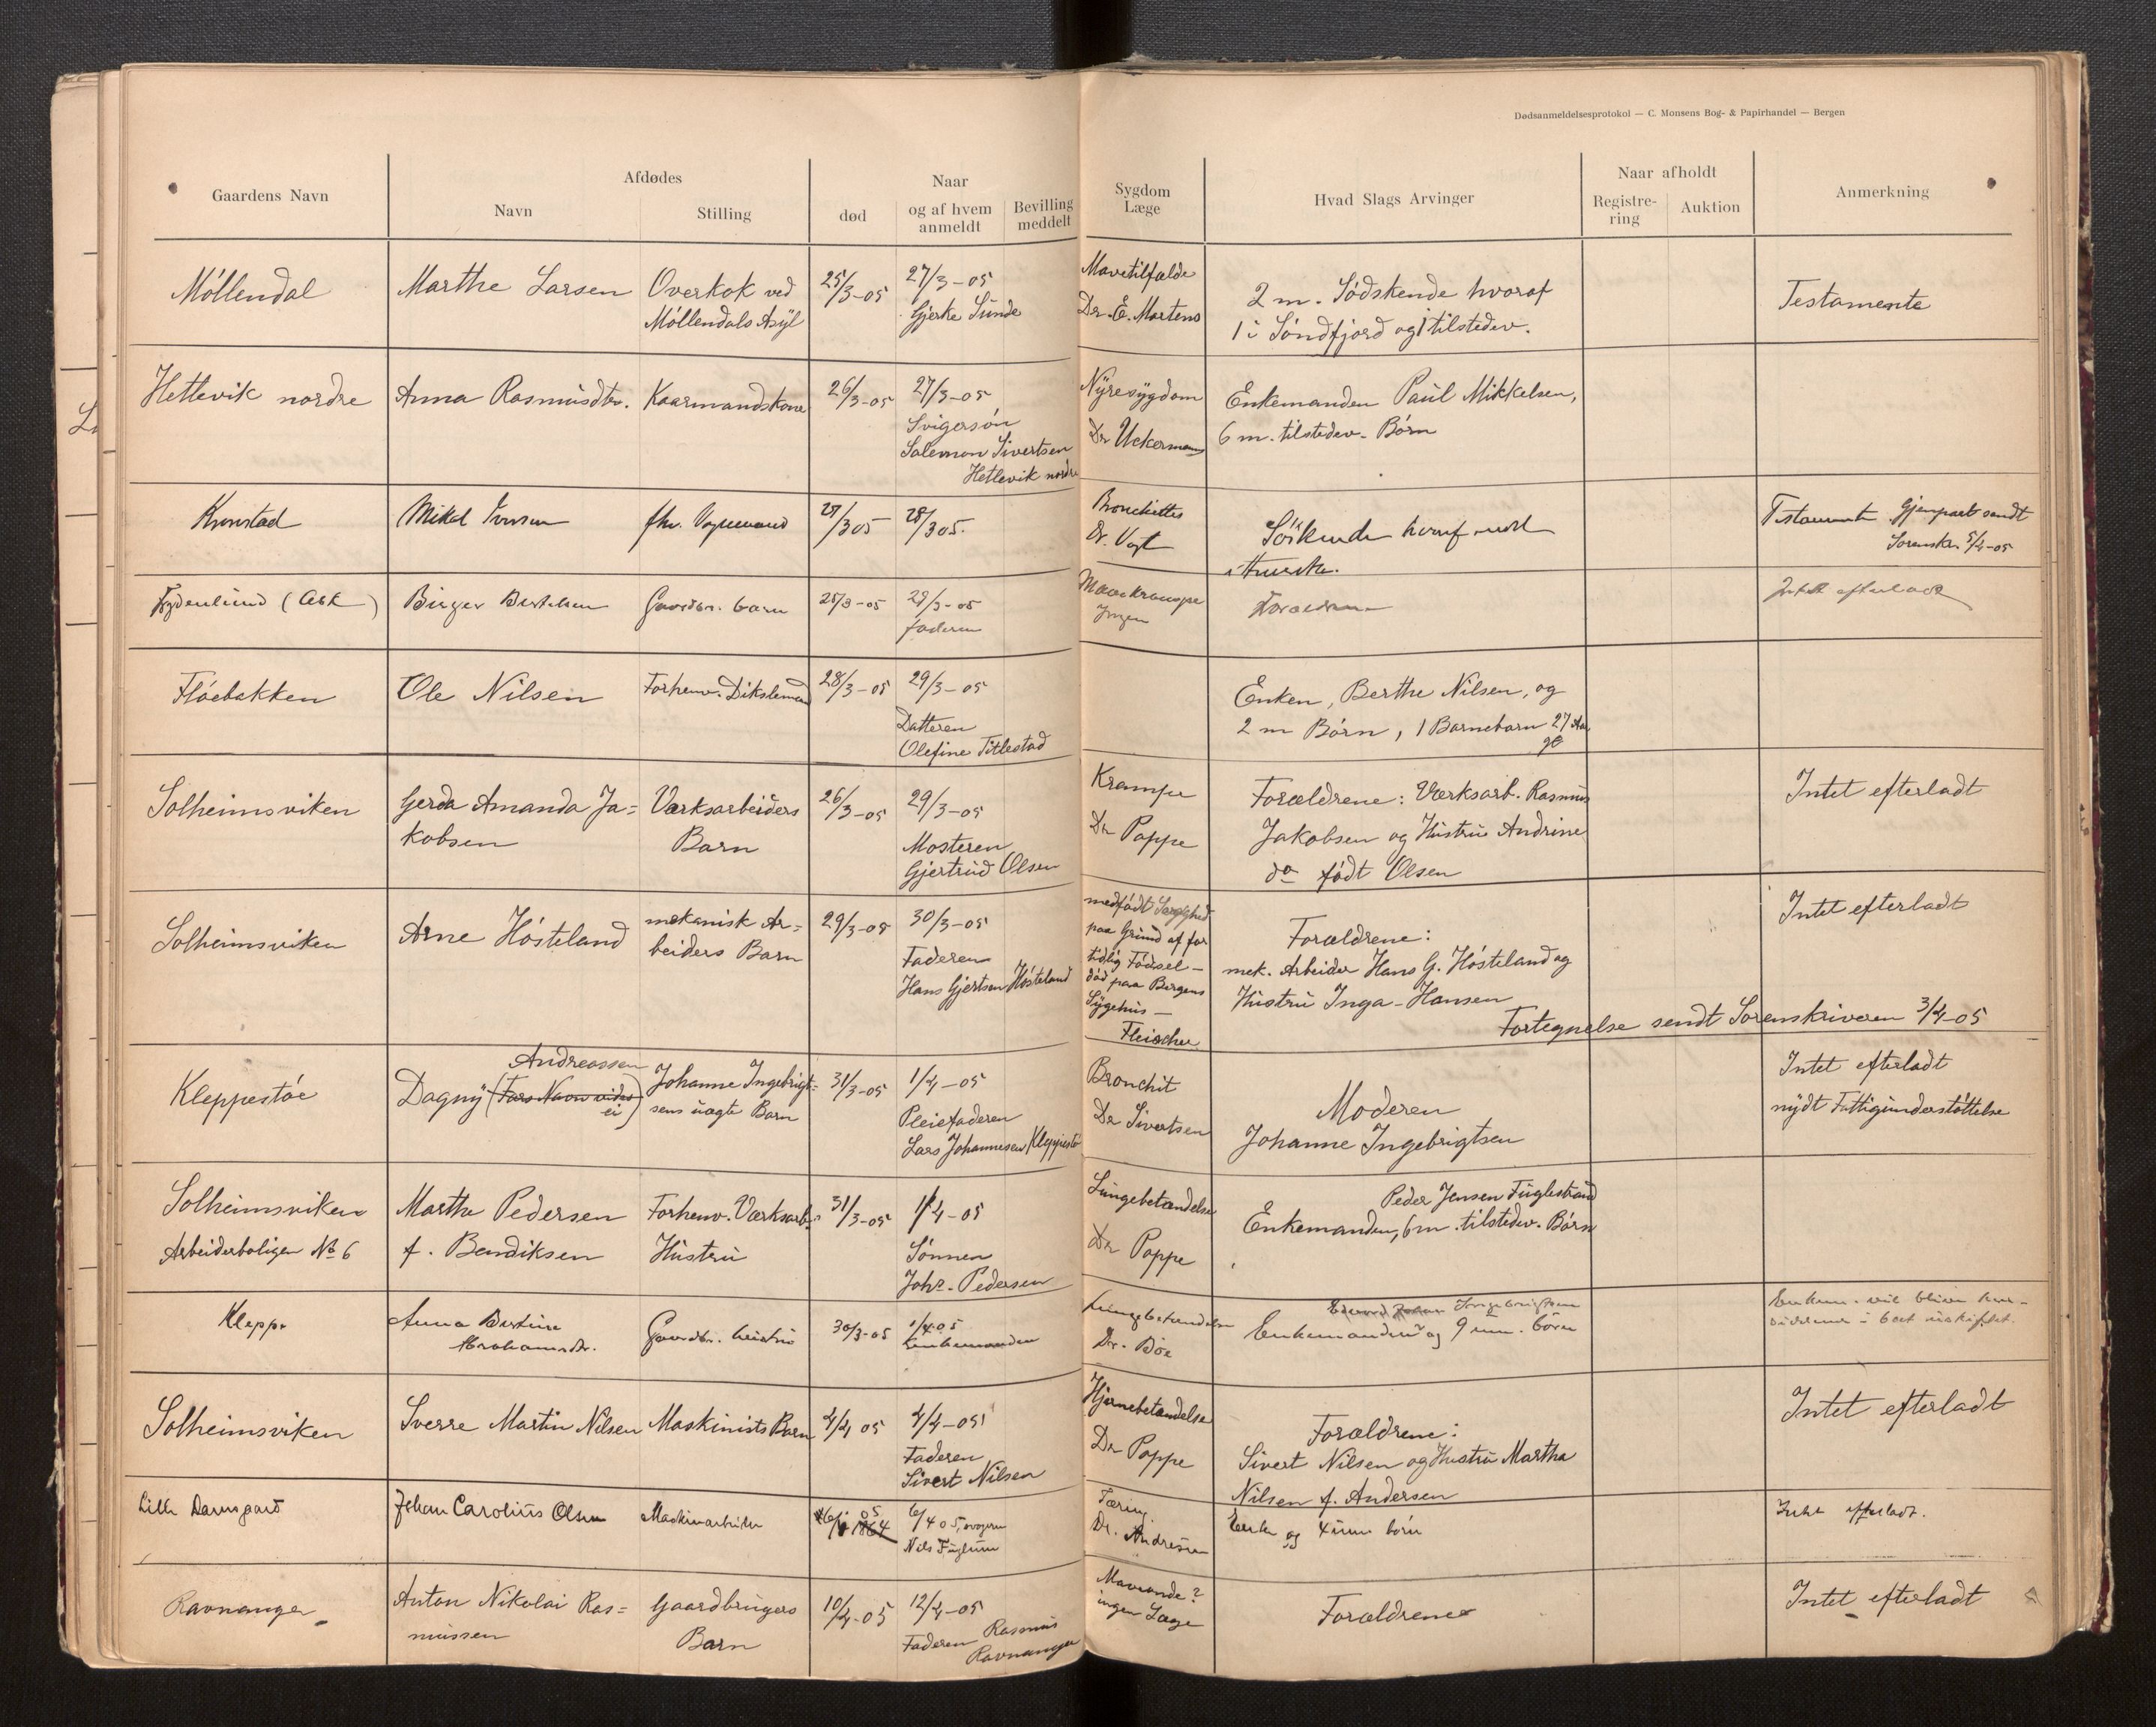 Dødsanmeldelsesprotokol — C. Monsens Bog- & Papirhandel — Bergen
Gaardens Navn
Afdødes
Navn
Stilling
død
Naar
og af hvem
anmeldt
Bevilling
meddelt
Sygdom
Læge
Hvad Slags Arvinger
Naar afholdt
Registre-
ring
Auktion
Anmerkning
Möllendal
Marthe Larsen
Overkok ved
Möllendals Asyl
25/3-05
27/3-05
Gjerke Sunde
Mavetilfælde
Dr. E. Martens
2 m. Södskende hvoraf
1 i Söndfjord og 1 tilstedev.
Testamente
Hetlevik nordre
Anna Rasmusdtr.
Kaarmandskone
26/3-05
27/3-05
Svigersön
Salemon Sivertsen
Hetlevik nordre
Nyresygdom
Dr Uckermann
Enkemanden Paul Mikkelsen,
6 m. tilstedev. Börn
Kronstad
Mikal Iversen
fhv. Vognmand
27/3 05
28/3 05.
Bronchittes
Dr. Vogt
Söskende hvoraf
Gjenpart sendt
Sorenskr. 5/4-05
(Ask)
Birger Bertelsen
Gaardbr. barn
25/3-05
29/3-05
faderen
Mavekrampe
Ingen
Forældrene
Intet efterladt
Flöebakken
Ole Nilsen
Forhenv.
28/3-05
29/3-05
Datteren
Olefine Titlestad
Enken, Berthe Nilsen, og
2 m Börn, 1 Barnebarn 27 Aar
gl
Solheimsviken
Gerda Amanda Ja=
kobsen
Værksarbeiders
Barn
26/3-05
29/3-05
Mosteren
Gjertrud Olsen
Krampe
Dr Poppe
Forældrene: Værksarb. Rasmus
Jakobsen og Hustru Andrine
do födt Olsen
Intet efterladt
Solheimsviken
Arne Hösteland
mekanisk Ar=
beiders Barn
29/3-05
30/3-05
Faderen
Hans Gjertsen Hösteland
medfödt Svaghed
paa Grund af for
tidlig Födsel —
död paa Bergens
Sygehus —
Fleischer
Forældrene:
mek. Arbeider Hans G. Hösteland og
Hustru Inga - Hansen
Intet efterladt
Fortegnelse sendt Sorenskriveren 3/4-05
Kleppestöe
Andreassen
Dagny (Fars Navn vides
ei)
Johanne Ingebrigt=
sens uægte Barn
31/3-05
1/4-05
Pleiefaderen
Lars Johannesen, Kleppestö
Bronchit
Dr Sivertsen
Moderen
Johanne Ingebrigtsen
Intet efterladt
nydt Fattigunderstöttelse
Solheimsviken
Arbeiderboligen No 6
Marthe Pedersen
f. Bendiksen
Forhenv. Værksarb.
Hustru
31/3-05
1/4-05
Sönnen
Johs. Pedersen
Lungebetændelse
Dr Poppe
Peder Jensen Fuglestrand
Enkemanden, 6 m. tilstedev. Börn
Kleppe
Anna Bertine
Abrahamsdtr.
Gaardbr. hustru
30/3-05
1/4 05
Enkemanden
Lungebetændelse
Dr. Böe
Ingebrigtsen
Enkemanden og 9 um. börn
Enkem. vil blive
Solheimsviken
Sverre Martin Nilsen
Maskinists Barn
4/4 05
4/4-05
Faderen
Sivert Nilsen
Hjernebetændelse
Dr Poppe
Forældrene:
Sivert Nilsen og Hustru Martha
Nilsen f. Andersen
Intet efterladt
Lille Damsgard
Johan Carolius Olsen
Maskinarbeider
05
1864
6/4 05, svogeren
Nils Fuglum
Tæring.
Dr. Andresen
Enke og 4 um. börn
Intet efterladt.
Ravnanger
Anton Nikolai Ras=
mussen
Gaardbrugers
Barn
10/4-05
12/4-05
Faderen Rasmus
Ravnanger
Maveonde?
ingen Læge
Forældrene
Intet efterladt